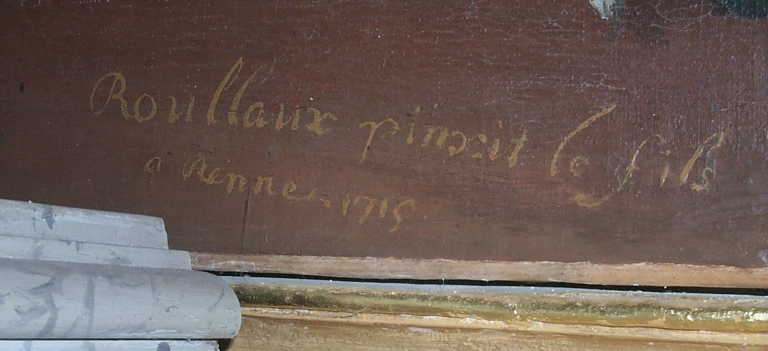 Roullaux pinxit le fils
a Rennes. 1715